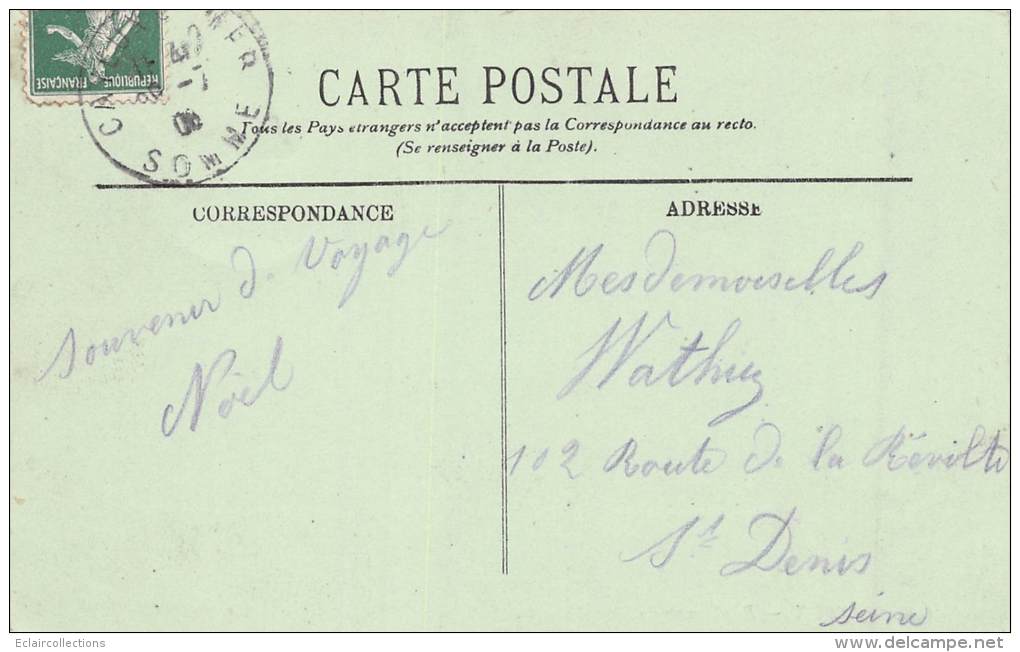 REPUBLIQUE FRANÇAISE
SOMME
CARTE POSTALE
Tous les Pays étrangers n'acceptent pas la Correspondance au recto.
(Se renseigner à la Poste).
CORRESPONDANCE
ADRESSE
Souvenir de Voyage
Noël
Mesdemoiselles
102 Route de la Révolte
St Denis
Seine
Eclaircollections
www.delcampe.net